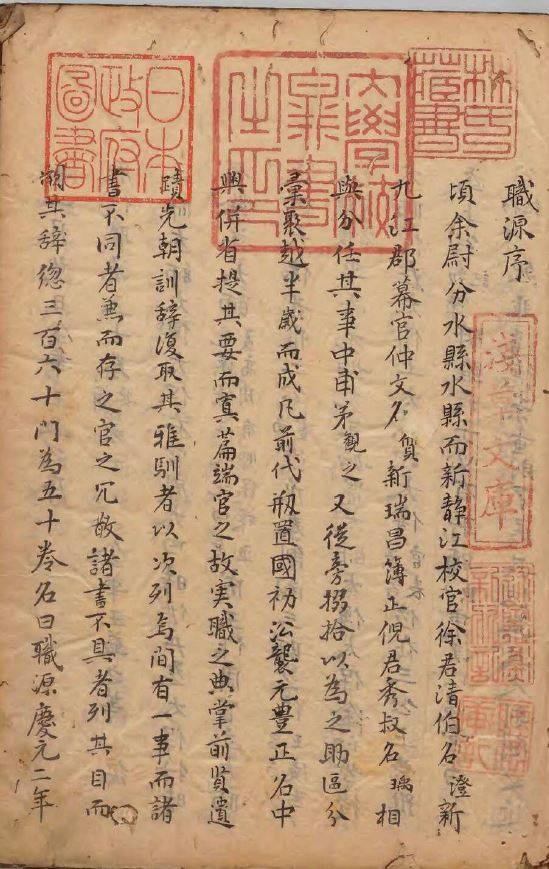 職源序
頃余尉分水縣水縣而新静江校官徐君清伯名澄新
九江郡幕官仲文名貲新瑞昌簿正倪君秀叔名瑀相
與分任其事中甫弟觀之又從旁掇拾以為之助區分
彙聚越半歲而成凡前代刱置國初沿襲元豊正名中
興併省提其要而寘萹端官之故実職之典掌前賢遺
蹟先朝訓辞復取其雅馴者以次列焉間有一事而諸
書不同者兼而存之官之冗散諸書不具者列其目而
闕其辞緫三百六十門為五十卷名曰職源慶元二年
林氏藏書
日本政府圖書
淺草文庫